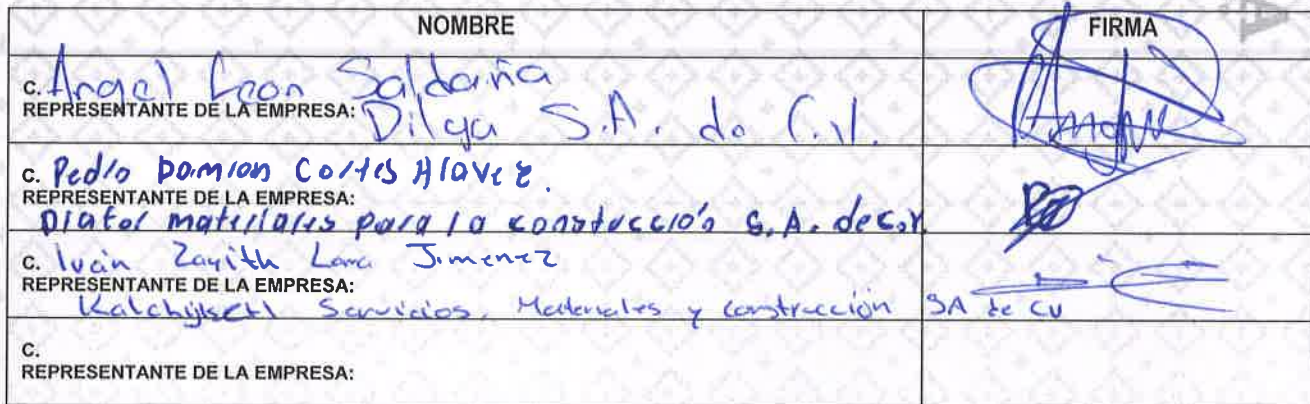 NOMBRE FIRMA
C. Angel Leon Saldaña
REPRESENTANTE DE LA EMPRESA: Dilga S.A. de C.V.
C. Pedro Damion Cortes Alavez.
REPRESENTANTE DE LA EMPRESA:
materiales para la construcción S.A. de C.V.
C. Iván Zayith Lara Jimenez
REPRESENTANTE DE LA EMPRESA:
Servicios, Materiales y construcción SA de CV
C.
REPRESENTANTE DE LA EMPRESA: